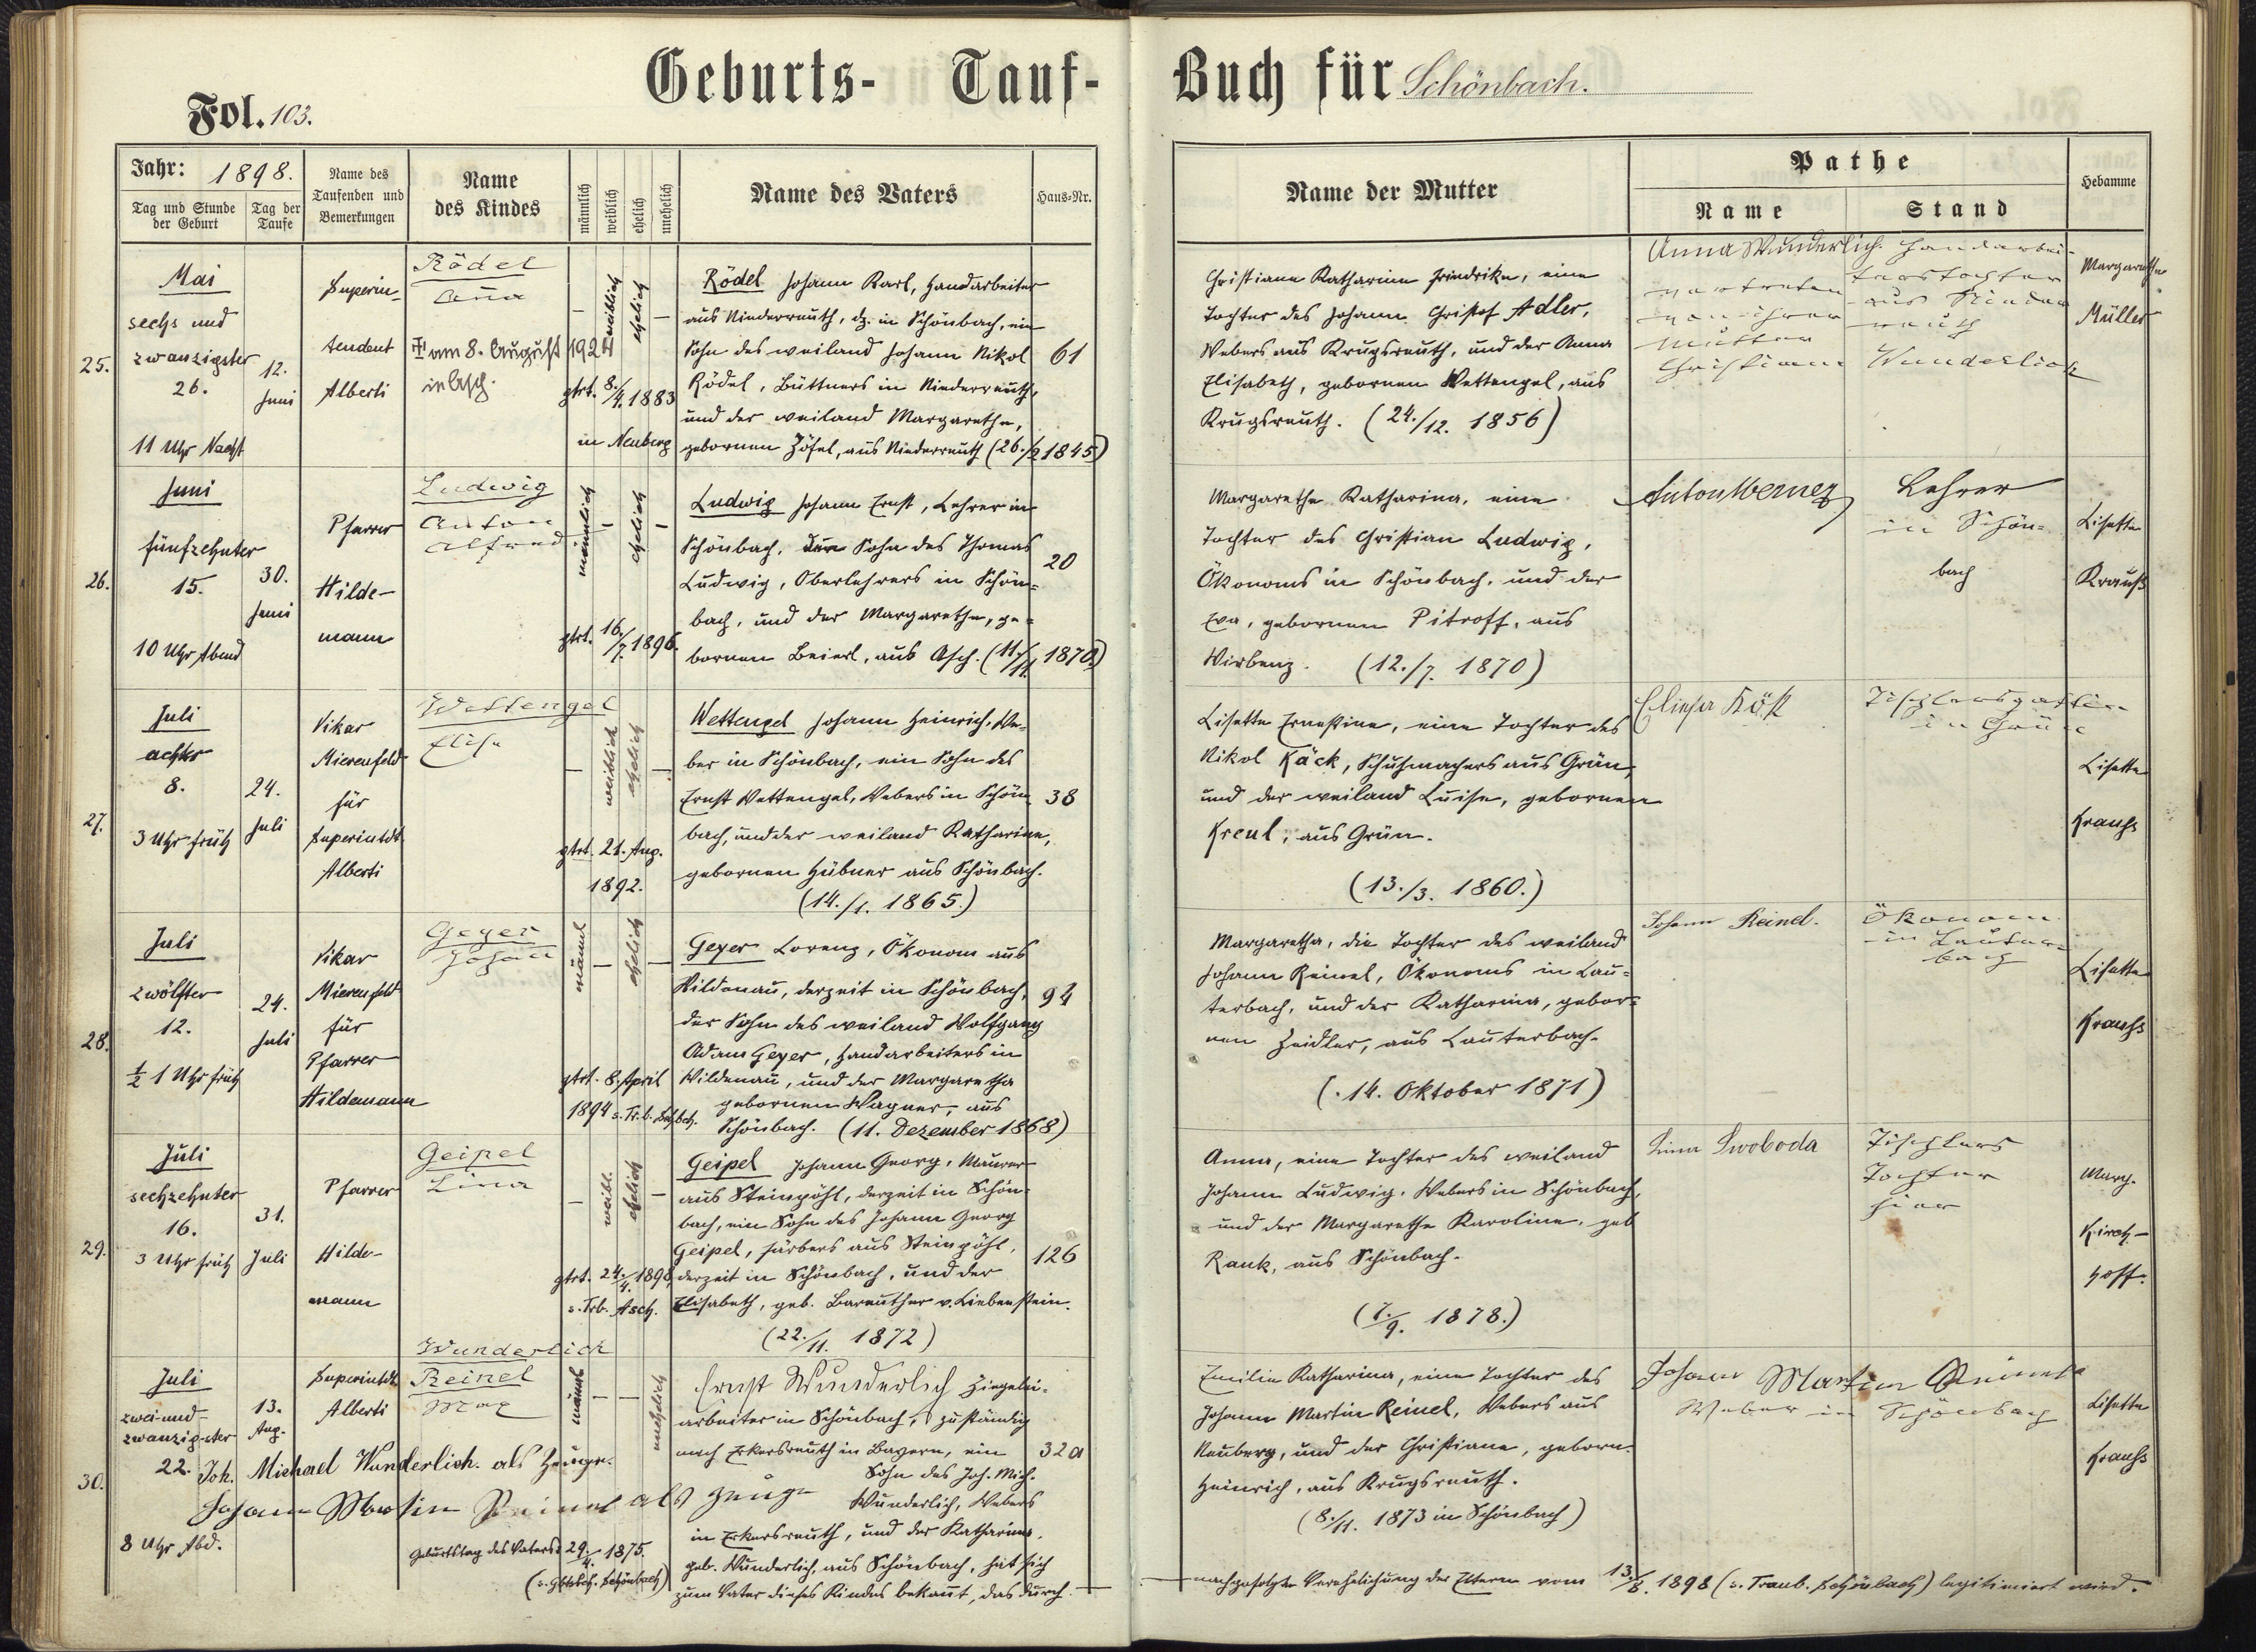 Geburts- Tauf- Buch für Schönbach.
Fol. 103.
Jahr: 1898.
Tag und Stunde der Geburt
Tag der Taufe
Name des Taufenden und Bemerkungen
Name des Kindes
männlich
weiblich
ehelich
unehelich
Name des Vaters
Haus-Nr.
Name der Mutter
Pathe
Name
Stand
Hebamme
25.
Mai
sechs und
zwanzigster
26.
11 Uhr Nacht
12.
Juni
Superin-
tendent
Alberti
Rödel
Anna
am 8. August 1924
in Asch.
weiblich
ehelich
gtrt. 8./4. 1883
in Neuberg
Rödel Johann Karl, Handarbeiter
aus Niederreuth, dz. in Schönbach, ein
Sohn des weiland Johann Nikol
Rödel, Büttners in Niederreuth,
und der weiland Margarethe,
gebornen Zöfel, aus Niederreuth (26./2 1845)
61
Christiane Katharine Friedrike, eine
Tochter des Johann Christof Adler,
Webers aus Krugsreuth, und der Anna
Elisabeth, gebornen Wettengel, aus
Krugsreuth. (24./12. 1856)
Anna Wunderlich. Handarbei-
terstochter
vertreten aus Nieder
von ihrer reuth
Mutter
Christiane Wunderlich
Margarethe
Müller
26.
Juni
fünfzehnter
15.
10 Uhr Abend
30.
Juni
Pfarrer
Hilde-
mann
Ludwig
Anton
Alfred.
männlich
ehelich
gtrt. 16./7. 1896.
Ludwig Johann Ernst, Lehrer in
Schönbach, Sohn des Thomas
Ludwig, Oberlehrers in Schön-
bach, und der Margarethe, ge-
bornen Beierl, aus Asch. (11./11. 1870)
20
Margarethe Katharina, eine
Tochter des Christian Ludwig,
Ökonoms in Schönbach, und der
Eva, gebornen Pitroff, aus
Wirbenz. (12./7. 1870)
Anton Werner
Lehrer
in Schön-
bach
Lisette
Krauß
27.
Juli
achter
8.
3 Uhr früh
24.
Juli
Vikar
Mierenfeld
für
Superintdt.
Alberti
Wettengel
Elise
weiblich
ehelich
gtrt. 21. Aug.
1892.
Wettengel Johann Heinrich, We-
ber in Schönbach, ein Sohn des
Ernst Wettengel, Webers in Schön
bach, und der weiland Katharine,
gebornen Hübner aus Schönbach.
(14./1. 1865.)
38
Lisette Ernestine, eine Tochter des
Nikol Käck, Schuhmachers aus Grün,
und der weiland Luise, gebornen
Kreul, aus Grün.
(13./3. 1860.)
Tischlersgattin
in Grün
Lisette
Krauß
28.
Juli
zwölfter
12.
½ 1 Uhr früh
24.
Juli
Vikar
Mierenfeld
für
Pfarrer
Hildemann
Geyer
Johann
männl
ehelich
gtrt. 8. April
1894 s. Tr. b.
Geyer Lorenz, Ökonom aus
Wildenau, derzeit in Schönbach,
der Sohn des weiland Wolfgang
Adam Geyer, Handarbeiters in
Wildenau, und der Margaretha
gebornen Wagner, aus
Schönbach. (11. Dezember 1868)
94
Margaretha, die Tochter des weiland
Johann Reinel, Ökonoms in Lau-
terbach, und der Katharina, gebor-
nen Zeidler, aus Lauterbach.
(14. Oktober 1871)
Johann Reinel.
Ökonom
in Lauter-
bach
Lisette
Krauß
29.
Juli
sechzehnter
16.
3 Uhr früh
31.
Juli
Pfarrer
Hilde-
mann
Geipel
Lina
weibl.
ehelich
gtrt. 24./4. 1898,
s. Trb. Asch.
Geipel Johann Georg, Maurer
aus Steinpöhl, derzeit in Schön-
bach, ein Sohn des Johann Georg
Geipel, Färbers aus Steinpöhl,
derzeit in Schönbach, und der
Elisabeth, geb. Bareuther v. Liebenstein.
(22./11. 1872)
126
Anna, eine Tochter des weiland
Johann Ludwig, Webers in Schönbach,
und der Margarethe Karoline, geb
Rank, aus Schönbach.
(7./9. 1878.)
Lina Swoboda
Tischlers
Tochter
hier
Marg.
Kirch-
hoff.
30.
Juli
zwei-und-
zwanzigster
22.
8 Uhr Abd.
13.
Aug.
Superintdt
Alberti
Wunderlich
Reinel
Max
männl
unehelich
Joh. Michael Wunderlich. als Zeuge.
Johann Martin Reinel als Zeuge
Geburtstag des Vaters: 29./4. 1875.
(s. Gbtsbch. Schönbach)
Ernst Wunderlich Ziegelei-
arbeiter in Schönbach, zuständig
nach Erkersreuth in Bayern, ein
Sohn des Joh. Mich.
Wunderlich, Webers
in Erkersreuth, und der Katharina,
geb. Wunderlich, aus Schönbach, hat sich
zum Vater dieses Kindes bekannt, das durch
32a
Emilie Katharina, eine Tochter des
Johann Martin Reinel, Webers aus
Neuberg, und der Christiane, geborn.
Heinrich, aus Krugsreuth.
(8./11. 1873 in Schönbach)
Johann Martin Reinel
Weber in Schönbach
Lisette
Krauß
nachgefolgte Verehelichung der Eltern vom 13./8. 1898 (s. Traub. Schönbach) legitimiert wird.